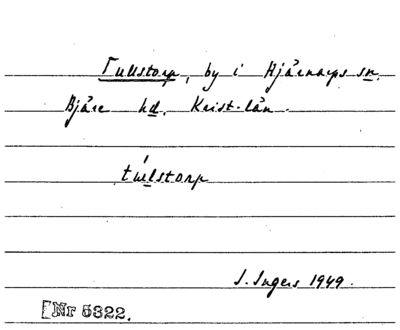 Tullstorp, by i Hjärnarps sn.
Bjäre hd. Krist. län.
túlstorp
I. Ingers 1949.
[Nr 5322.